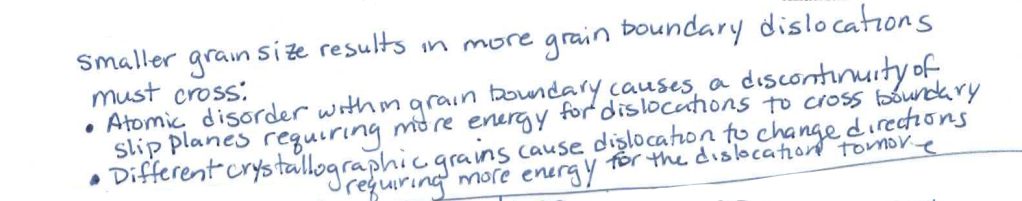 Smaller grain size results in more grain boundary dislocations
must cross:
• Atomic disorder within grain boundary causes a discontinuity of
slip planes requiring more energy for dislocations to cross boundary
• Different crystallographic grains cause dislocation to change directions
requiring more energy for the dislocation to move